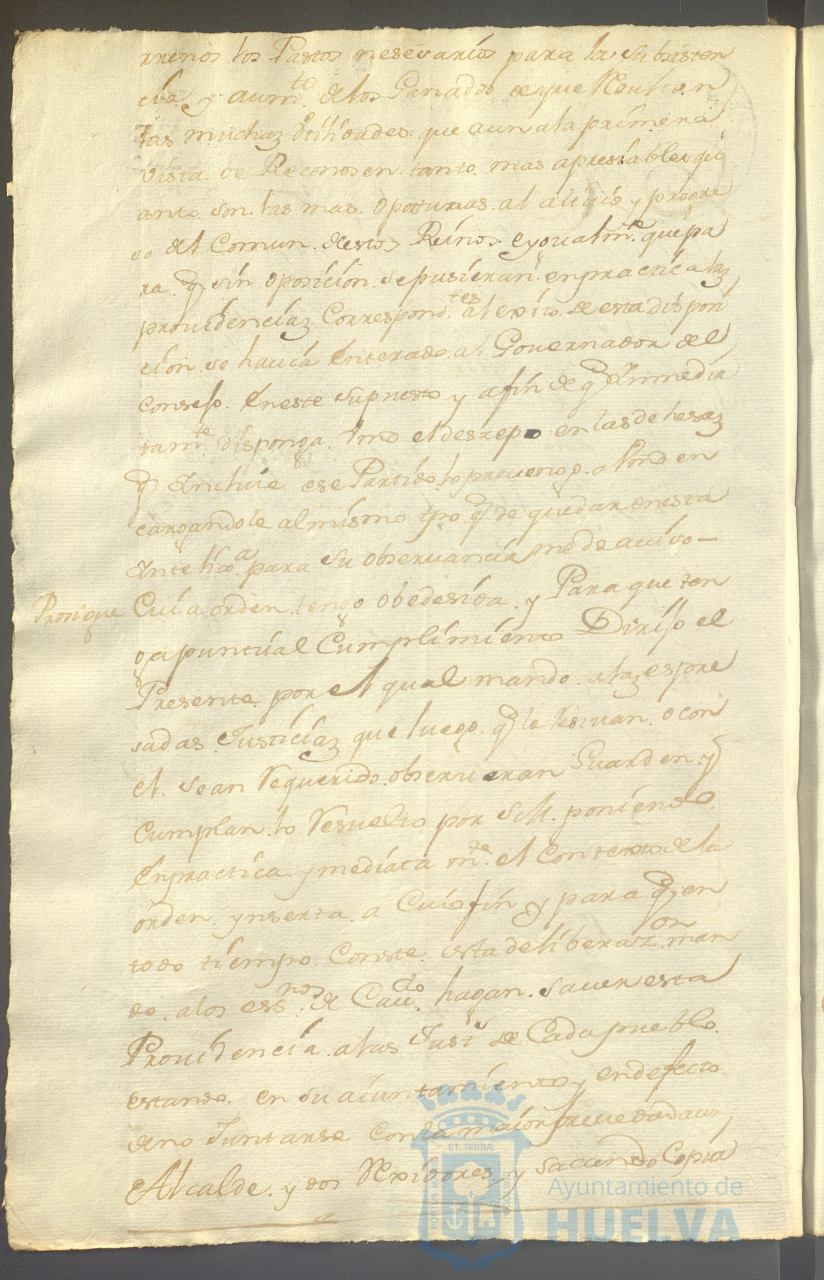 rrenos los Pastos nesesarios para la subsisten
cia, y aumto. de los Ganados de que Resultan
las muchaz Utilidades que aun a la primera
vista se Reconosen tanto mas apresiables qu
anto son las mas oportunas al alivio y progre
so del Comun destos Reinos e ygualmte. que pa
ra q sin oposicion se pusieran en practica laz
providenciaz Correspondtes. al exito de esta dispoci
cion se havia Enterado al Governador del
Consejo. En este supuesto y a fin de q Inmedia
tamte. disponga Vmd el desrepo en las dehesaz
q Incluie ese Partido lo prevengo a Vmd en
cargandole al mismo tpo. q de quedar en esta
Inteliga. para su observancia me de aviso—
Prosigue
Cuia orden tengo obedesida y Para que ten
ga puntual Cumplimiento Dirijo el
Presente por el qual mando a laz espre
sadas Justiciaz que luego q le Resivan o con
el sean Requerido observaran Guarden y
Cumplan lo Resuelto por S.M. poniendo
En practica ymediatamte. el Contexto de la
orden ynserta a Cuio fin y para q en
todo tiempo Conste esta deliberazon man
do a los essnos de Cavdo. hagan saver esta
Providencia a las Justs. de Cada pueblo
estando en su aiuntamiento y en defecto
de no Juntarse con la maior brevedad a un
Alcalde y dos Rexidores, y sacando Copia
ET TERRÆ
Ayuntamiento de
HUELVA